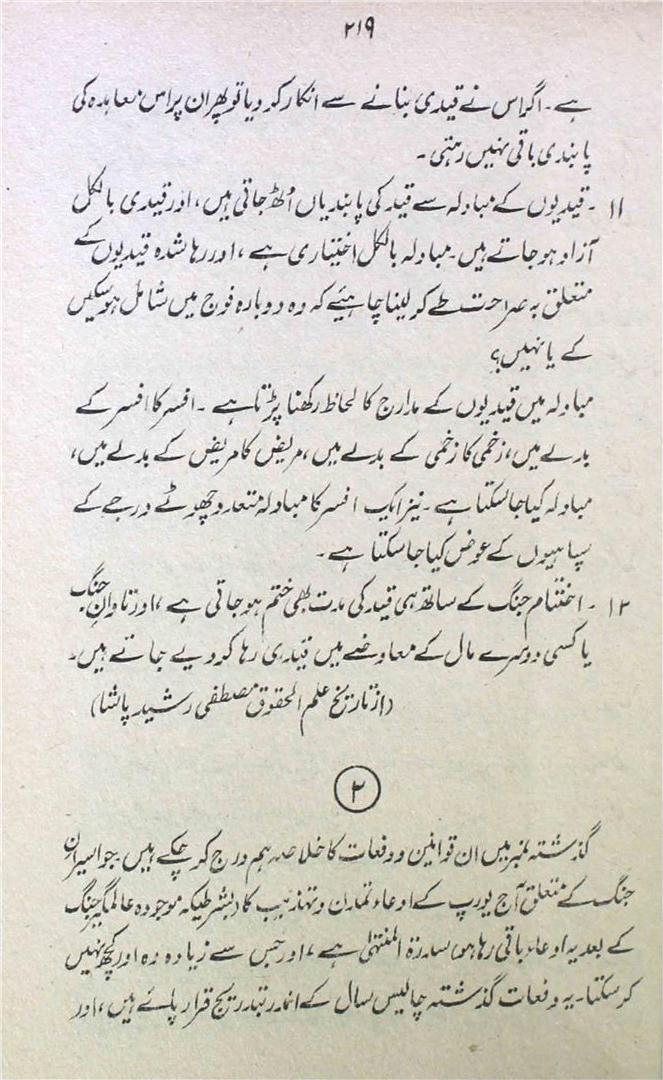 ۲۱۹
ہے۔ اگر اس نے قیدی بنانے سے انکار کر دیا تو پھر ان پر اس معاہدہ کی
پابندی باقی نہیں رہتی۔
۱۱ ۔ قیدیوں کے مبادلہ سے قید کی پابندیاں اُٹھ جاتی ہیں، اور قیدی بالکل
آزاد ہو جاتے ہیں۔ مبادلہ بالکل اختیاری ہے، اور رہا شدہ قیدیوں کے
متعلق بہ صراحت طے کر لینا چاہیئے کہ وہ دوبارہ فوج میں شامل ہو سکیں
گے یا نہیں؟
مبادلہ میں قیدیوں کے مدارج کا لحاظ رکھنا پڑتا ہے۔ افسر کا افسر کے
بدلے میں، زخمی کا زخمی کے بدلے میں، مریض کا مریض کے بدلے میں،
مبادلہ کیا جا سکتا ہے۔ نیز ایک افسر کا مبادلہ متعدد چھوٹے درجے کے
سپاہیوں کے عوض کیا جا سکتا ہے۔
۱۲ ۔ اختتام جنگ کے ساتھ ہی قید کی مدت بھی ختم ہو جاتی ہے، اور تاوانِ جنگ
یا کسی دوسرے مال کے معاوضے میں قیدی رہا کر دیے جاتے ہیں۔
(از تاریخ علم الحقوق مصطفٰی رشید پاشا)
۲
گذشتہ نمبر میں ان قوانین و دفعات کا خلاصہ ہم درج کر چکے ہیں جو اسیران
جنگ کے متعلق آج یورپ کے ادعاء تمدن و تہذیب کا (بشرطیکہ موجودہ عالمگیر جنگ
کے بعد یہ ادعاء باقی رہا ہو) سدرۃ المنتہیٰ ہے، اور جس سے زیادہ وہ اور کچھ نہیں
کر سکتا۔ یہ دفعات گذشتہ چالیس سال کے اندر بتدریج قرار پائے ہیں، اور